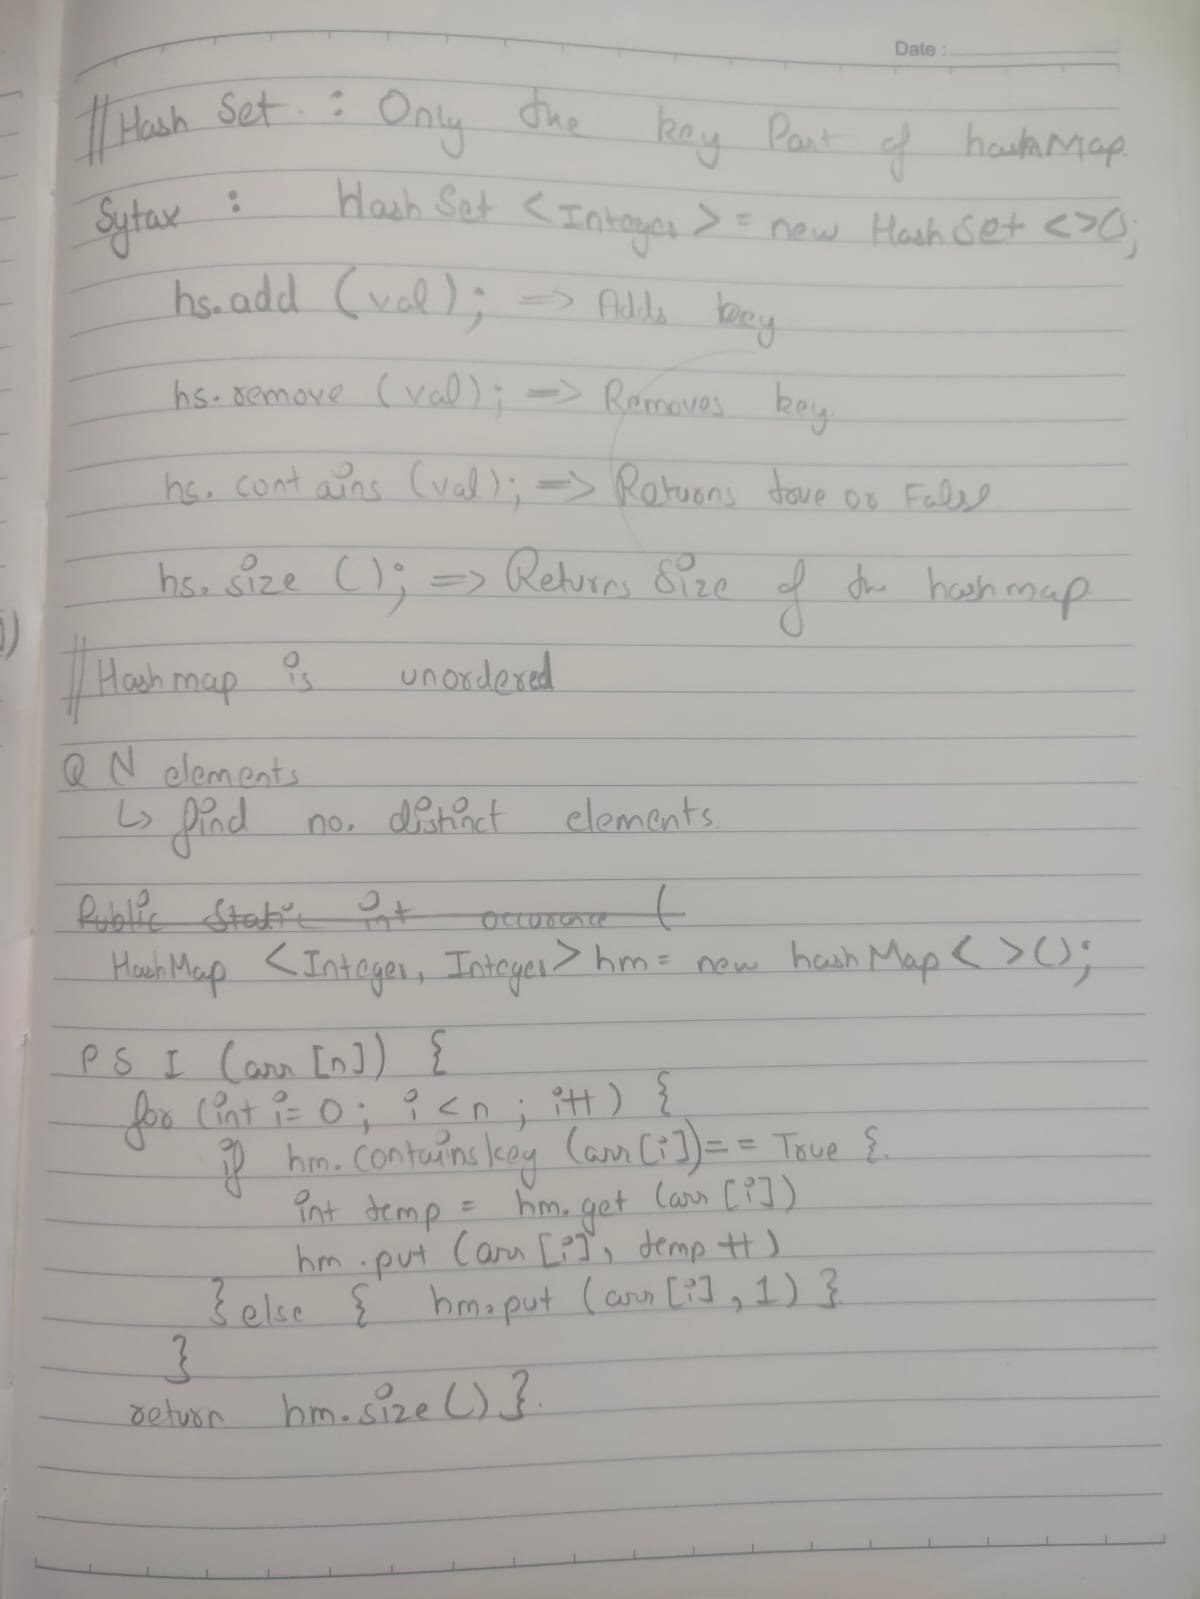 Date :
// Hash Set : Only the key Part of hashMap.
Sytax : Hash Set <Integer> = new Hash Set <>();
hs.add (val); => Adds key
hs.remove (val); => Removes key
hs. contains (val); => Returns true or False
hs. size (); => Returns Size of the hashmap
// Hashmap is unordered
Q N elements
↳ find no. distinct elements.
Public Static int occurence (
HashMap <Integer, Integer> hm = new hash Map < >();
P S I (arr [n]) {
for (int i = 0; i < n ; i++) {
if hm. contains key (arr [i]) == True {.
int temp = hm. get (arr [i])
hm .put (arr [i], temp ++)
} else { hm.put (arr [i], 1) }
}
return hm.size () }.